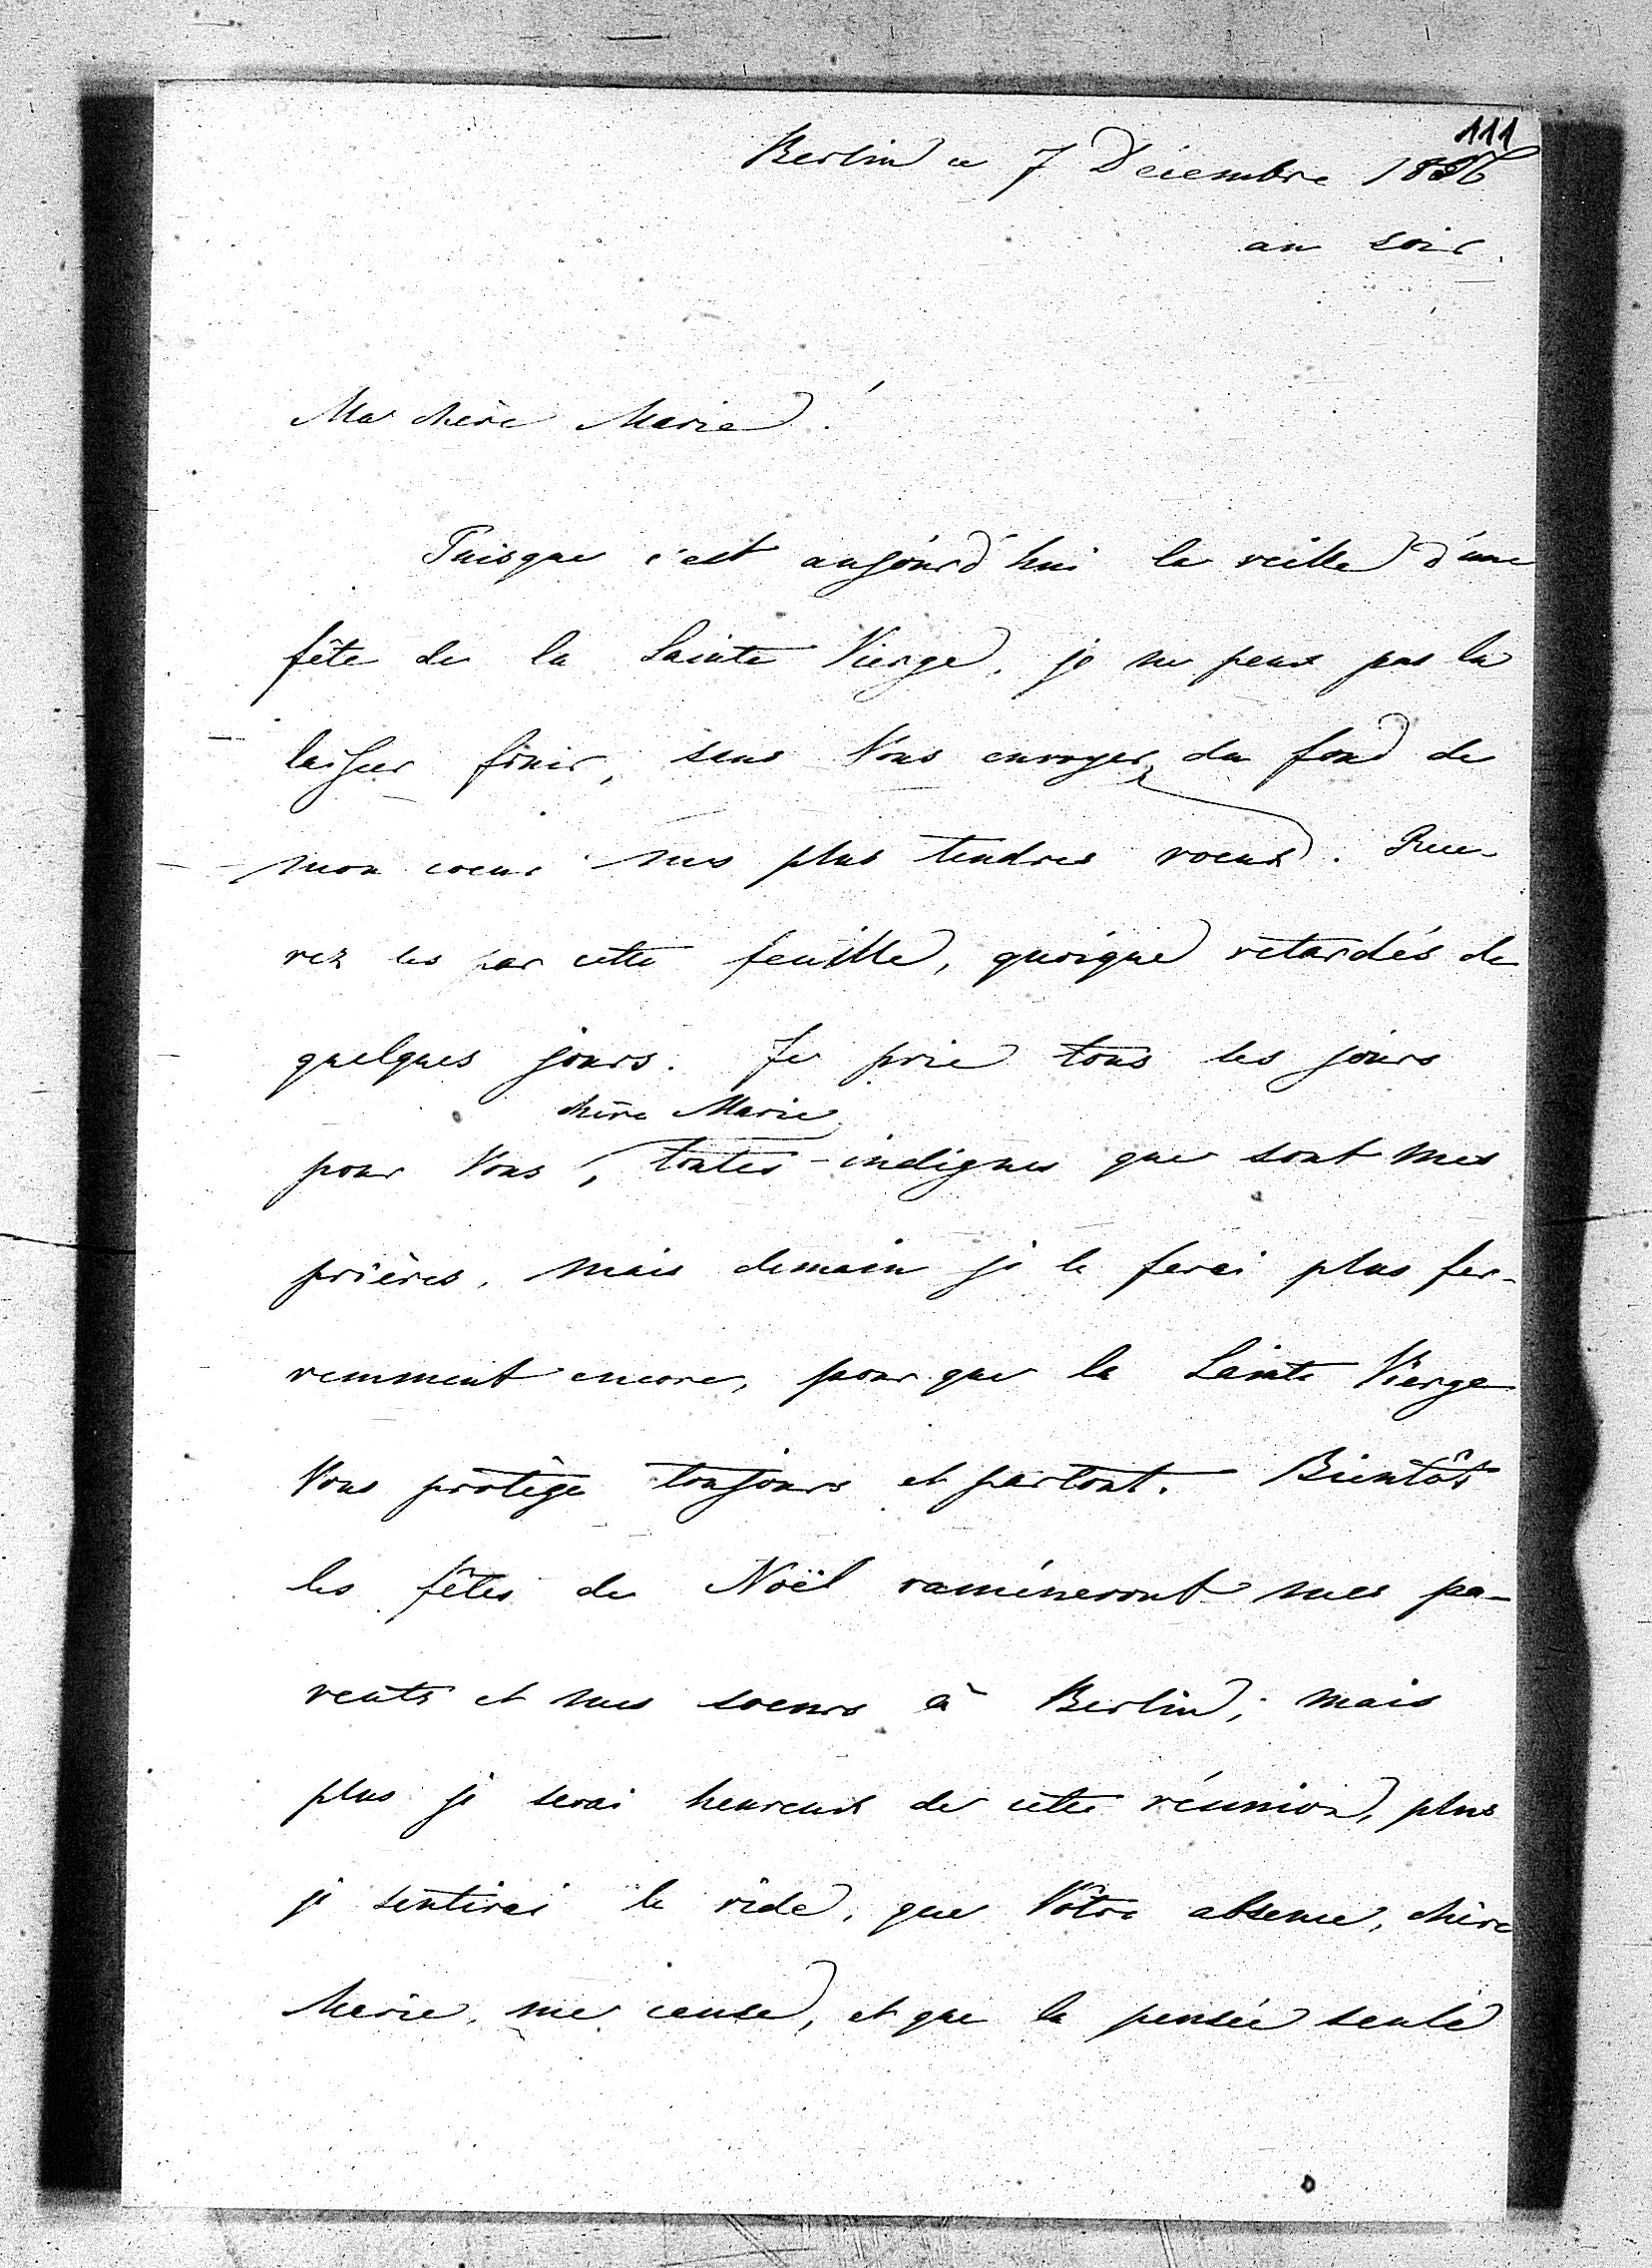 111
Berlin ce 7 Décembre 1886
au soir.
Ma chère Marie!
Puisque c'est aujourd'hui la veille d'une
fête de la Sainte Vierge, je ne peux pas la
laisser finir, sans Vous envoyer du fond de
mon coeur mes plus tendres voeux. Rece-
vez les par cette feuille, quoique retardés de
quelques jours. Je prie tous les jours
chère Marie
pour Vous, toutes indignes que sont mes
prières, mais demain je le ferai plus fer-
vemment encore, pour que la Sainte Vierge
Vous protège toujours et partout. Bientôt
les fêtes de Noël ramèneront mes pa-
rents et mes soeurs à Berlin; mais
plus je serai heureux de cette réunion, plus
je sentirai le vide, que Vôtre absence, chère
Marie, me cause, et que la pensée seule